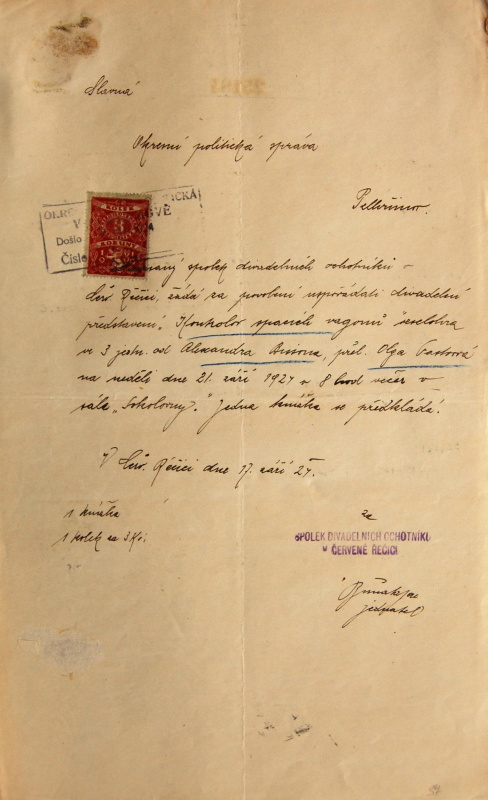 Slavná
Okresní politická správa
Pelhřimov.
KOLEK
3
KORUNY
Došlo
Číslo
spolek divadelních ochotníků v
Červ. Řečici, žádá za povolení uspořádati divadelní
představení: "Kontrolor spacích vagonů" veselohra
ve 3 jedn. od Alexandra Bissona, přel. Olga Fastrová
na neděli dne 21. září 1924 v 8 hod večer v
sále "Sokolovny." Jedna knížka se předkládá.
V Červ. Řečici dne 17. září 24.
1 knížka
1 kolek za 3 Kč.
za
SPOLEK DIVADELNÍCH OCHOTNÍKŮ
V ČERVENÉ ŘEČICI
jednatel